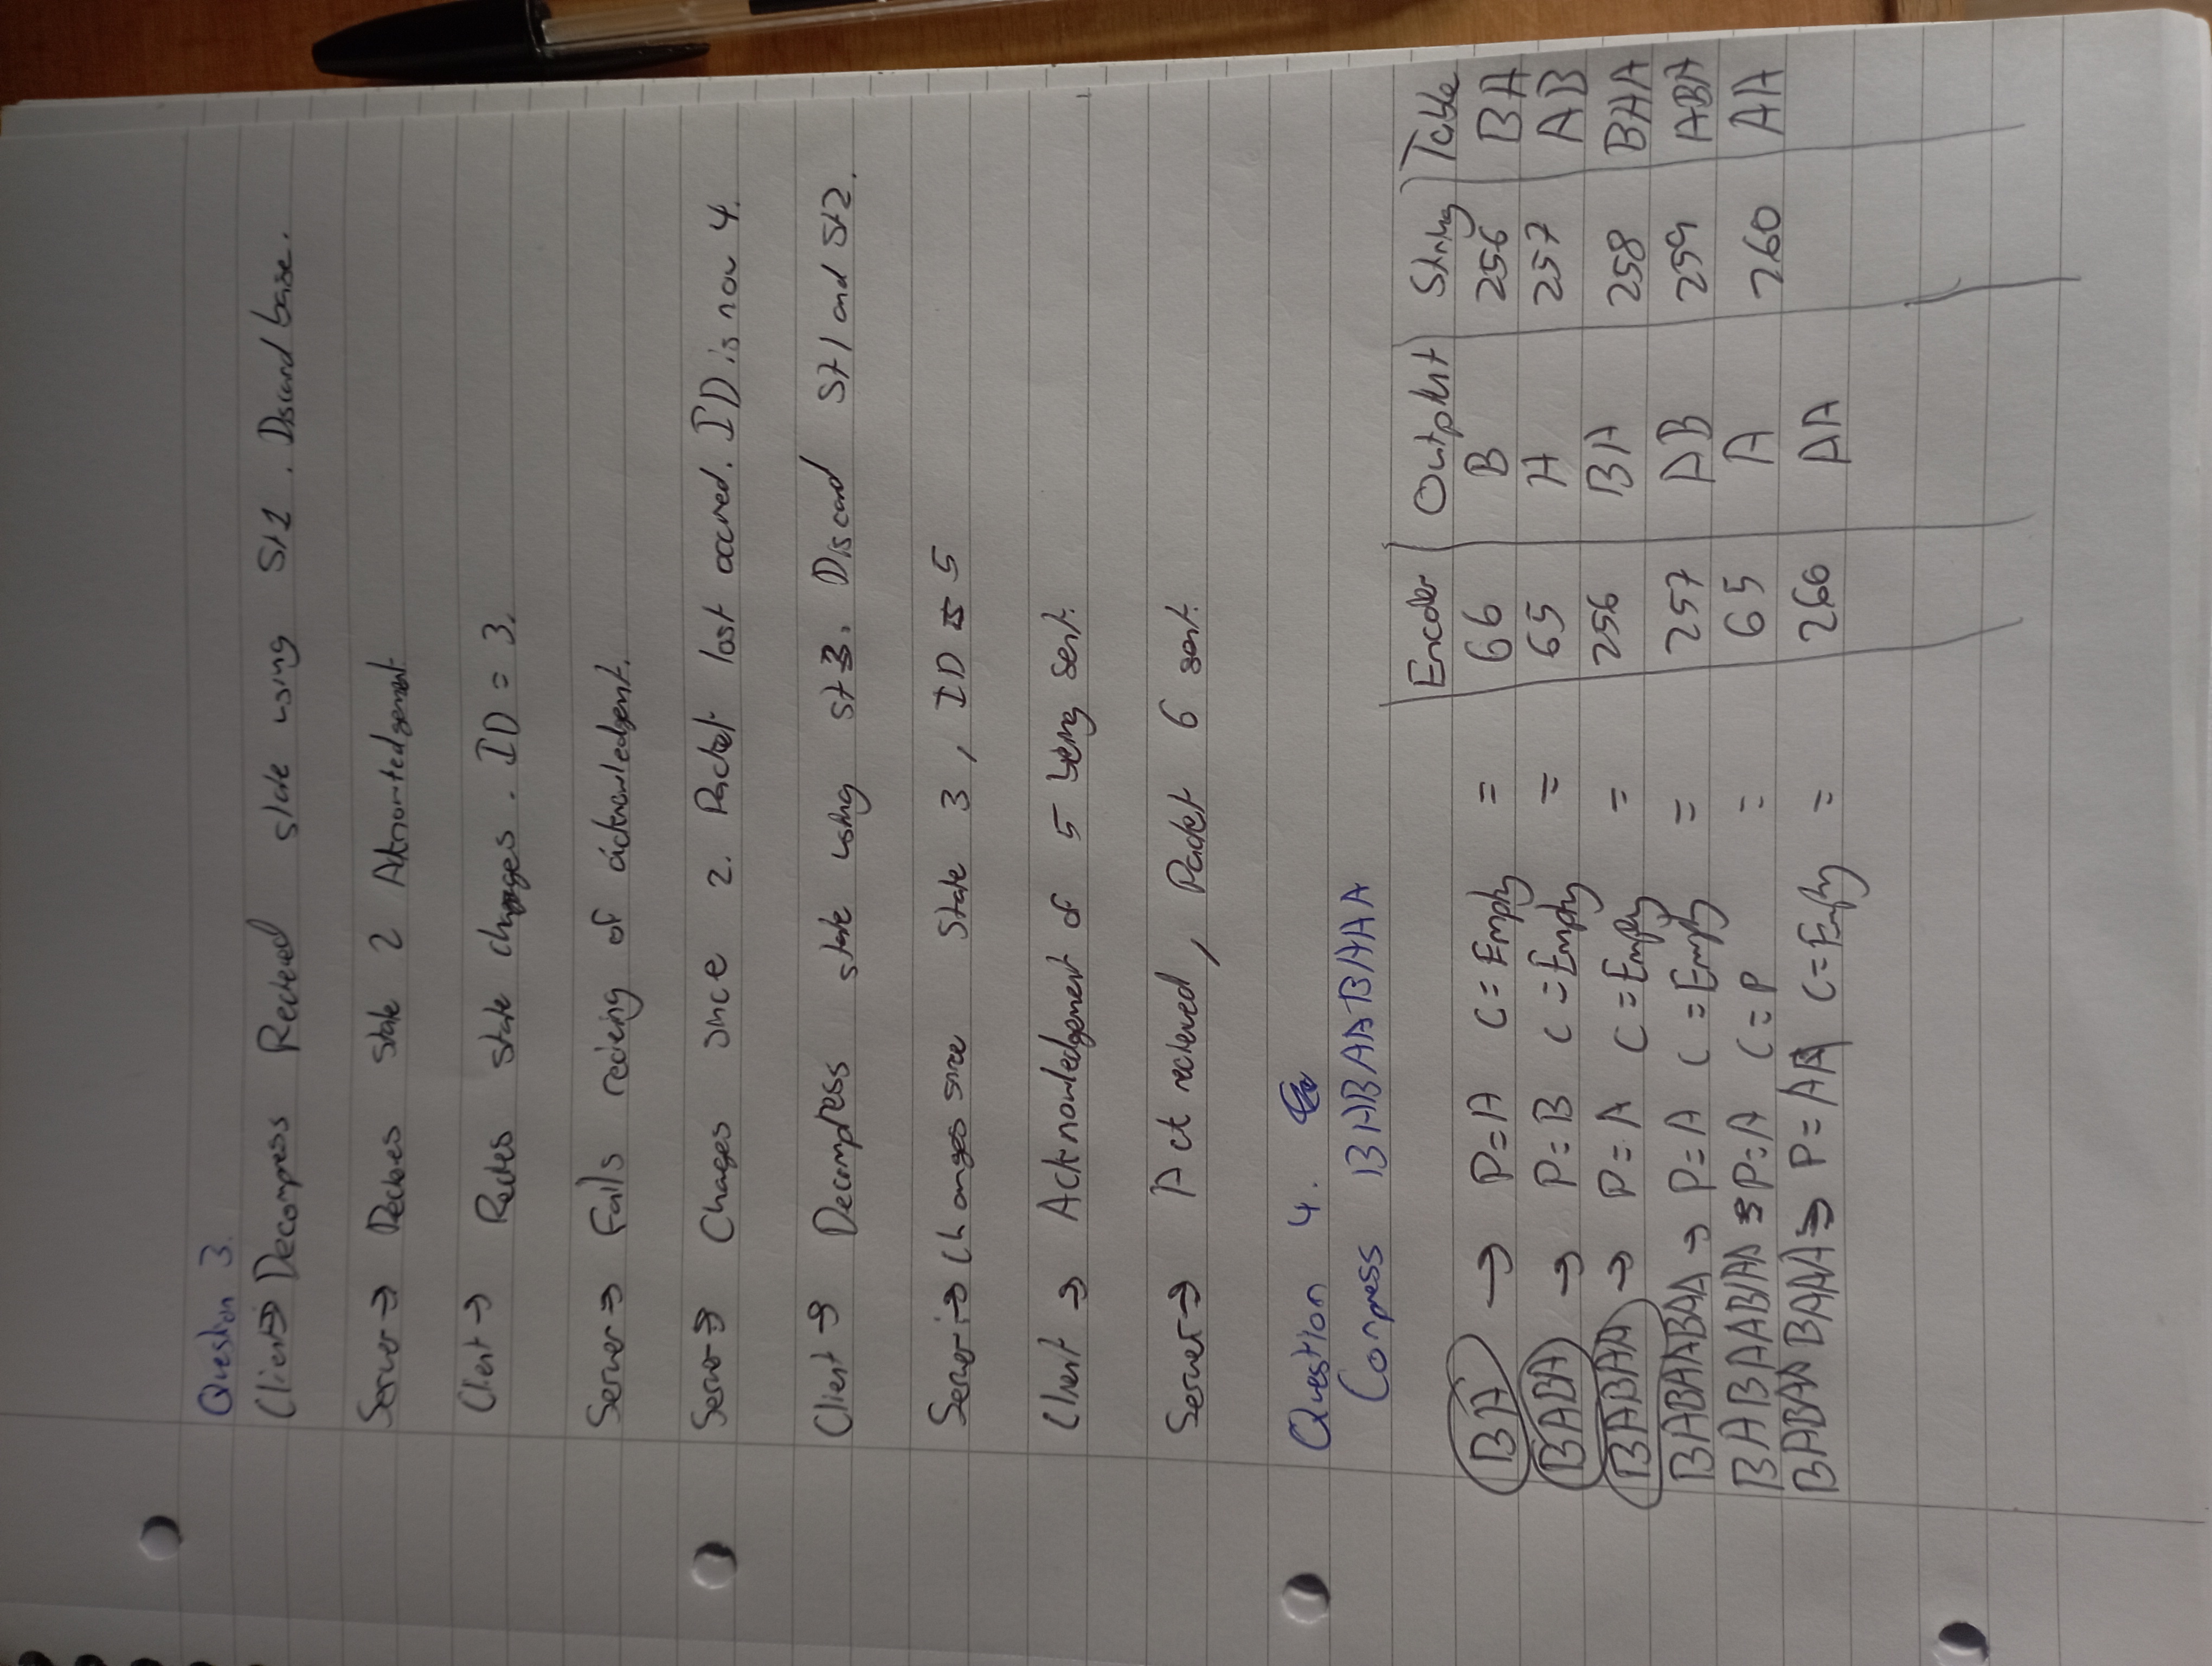 Question 3.
Client → Decompress Recieved state using St1. Discard base.
Server → Recieves state 2 Aknowledgement
Client → state changes. ID = 3.
Server → Fails recieving of acknowledgent.
Server → Changes since 2. Packet lost occured. ID is now 4.
Client → Decompress state using st3. Discard St1 and St2.
Server → Changes since State 3, ID = 5
Client → Acknowledgement of 5 being sent.
Server → Act recieved, Packet 6 sent.
Question 4.
Compress BABAABAAA
Encoder Output String Table
BA → P=A C=Empty = 66 B 256 BA
BABA → P=B C=Empty = 65 A 257 AB
BABAA → P=A C=Empty = 256 BA 258 BAA
BABAABAA → P=A C=Empty = 257 AB 259 ABA
BABAABAA → P=A C=P = 65 A 260 AA
BABAABAAA → P=AA C=Empty = 260 AA